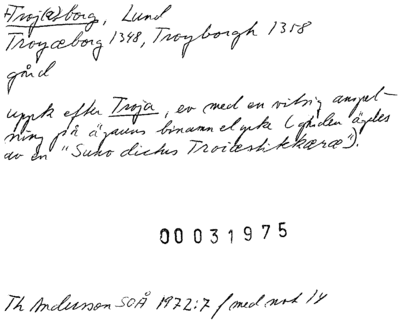 †Troj(e)borg, Lund
Troyæborg 1348, Troyborgh 1358
gård
uppk efter Troja, ev med en vitsig anspel-
ning på ägarens binamn el yrke (gården ägdes
av en "Suno dictus Troiæstikkæræ").
00031975
Th Andersson SOÅ 1972:7 f med not 14